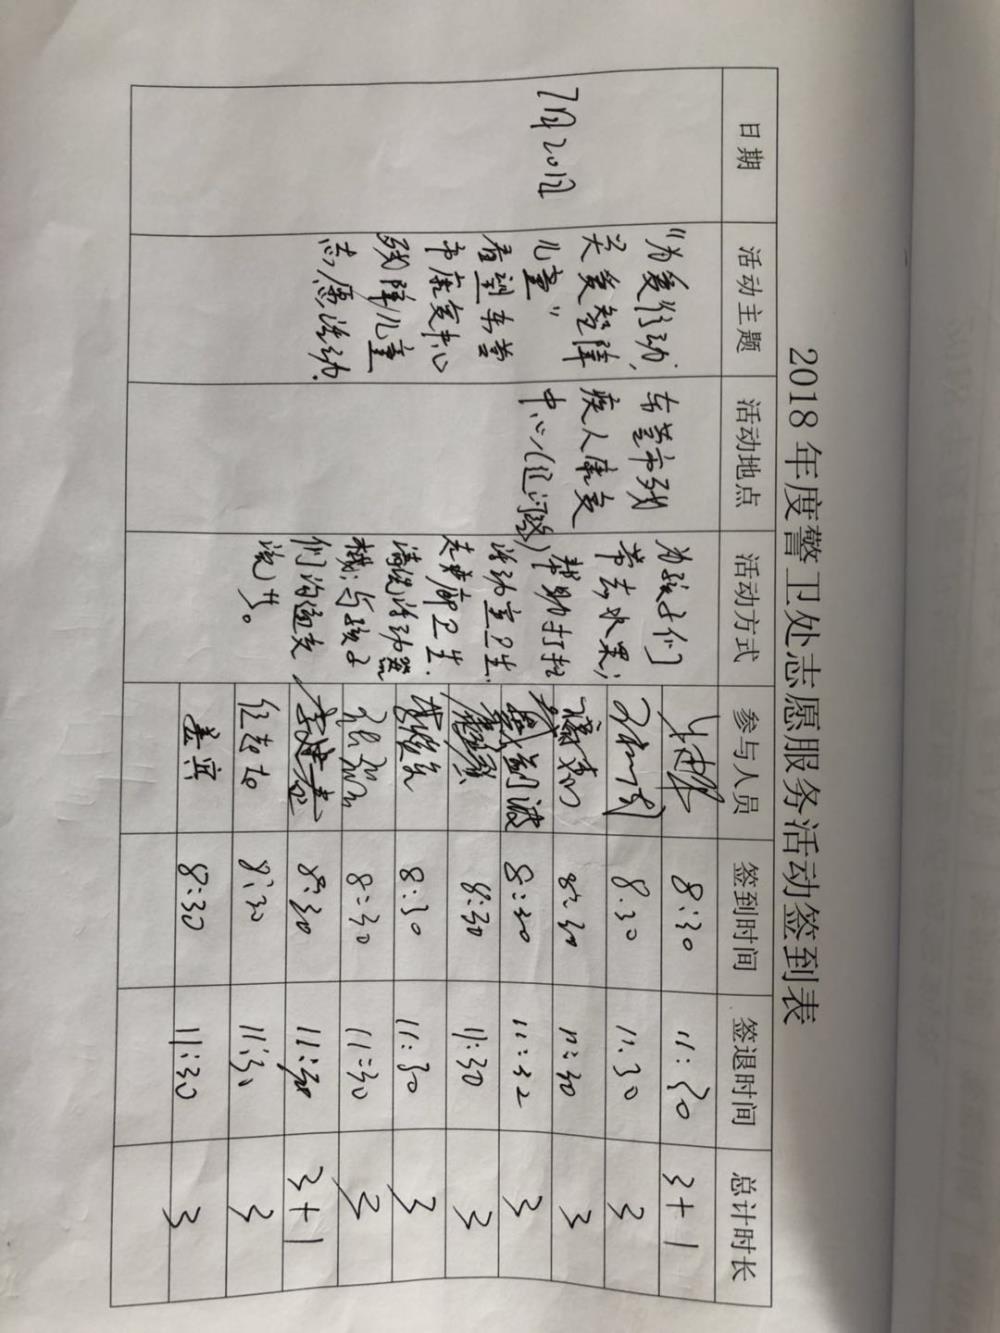 2018 年度警卫处志愿服务活动签到表
日期 活动主题 活动地点 活动方式 参与人员 签到时间 签退时间 总计时长
7月20日
“为爱行动,
关爱智障
儿童”
看望东莞
市康复中心
残障儿童
志愿活动.
东莞市残
疾人康复
中心
为孩子们
带去水果;
帮助打扫
活动室卫生.
走廊卫生.
清洗活动器
械;与孩子
们沟通交
流等。
8:30 11:30 3+1
8:30 11:30 3
8:30 11:30 3
8:30 11:32 3
8:30 11:30 3
8:30 11:30 3
8:30 11:30 3
8:30 11:30 3+1
8:30 11:30 3
姜宾 8:30 11:30 3